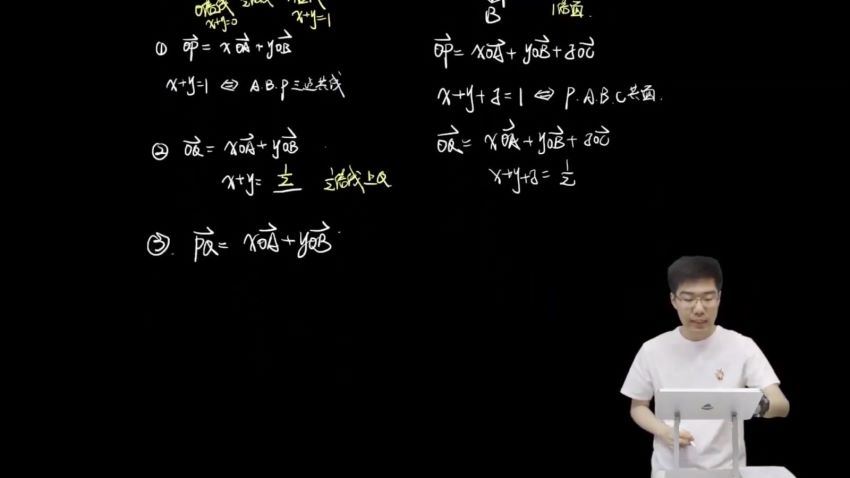 0倍线
x+y=0
x+y=1
① OP = xOA + yOB
x+y=1 ⇔ A.B.P三点共线
② OQ = xOA + yOB
x+y= 1/2 1/2倍线上Q
③. PQ = xOA + yOB
B
1倍面.
OP = xOA + yOB + zOC
x+y+z=1 ⇔ P.A.B.C共面.
OQ = xOA + yOB + zOC
x+y+z= 1/2